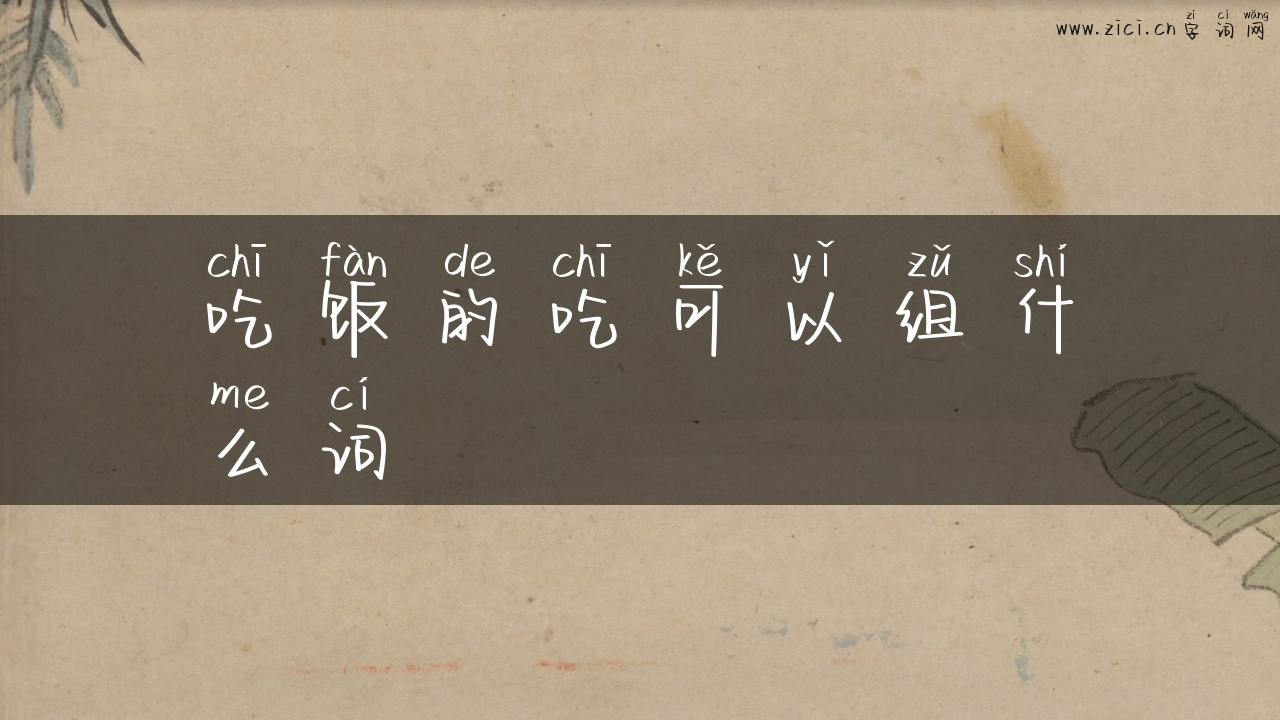 zì cí wǎng
www.zici.cn 字词网
chī fàn de chī kě yǐ zǔ shí
吃饭的吃可以组什
me cí
么词